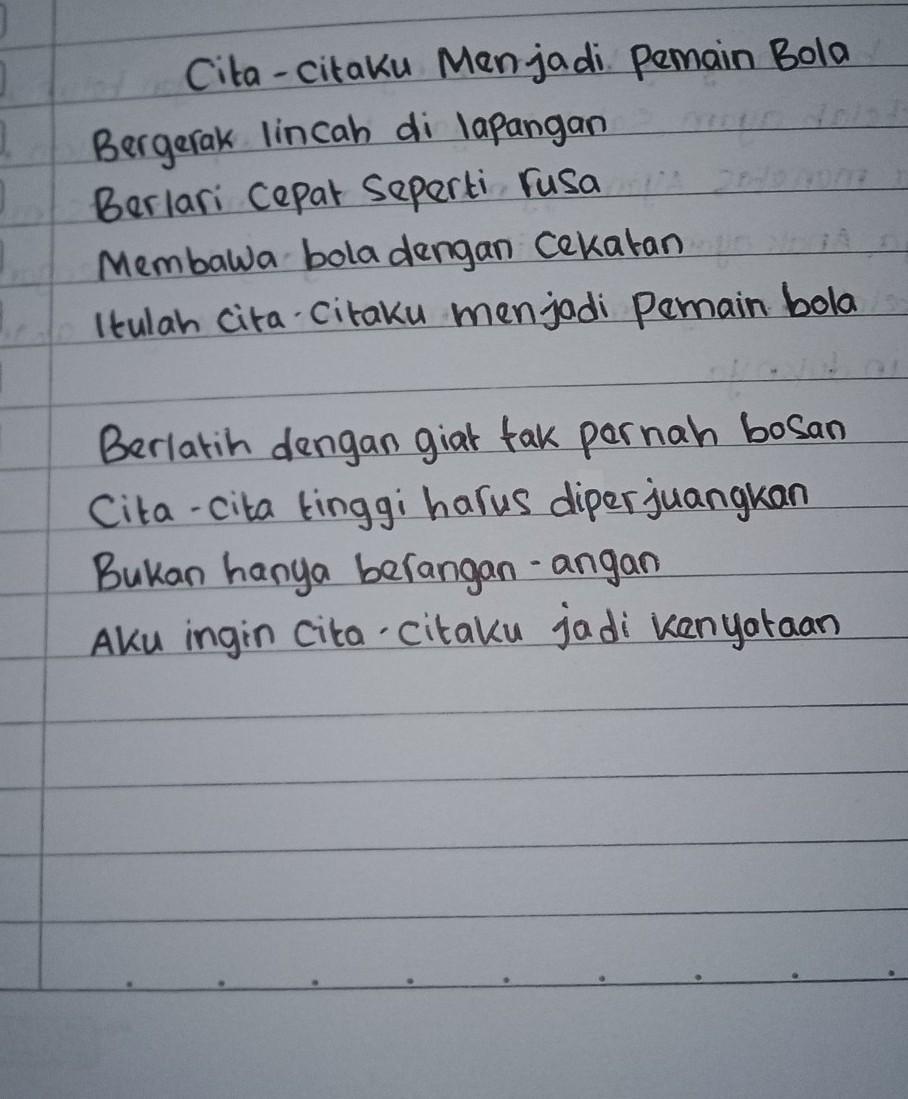 Cita-citaku Menjadi Pemain Bola
Bergerak lincah di lapangan
Berlari cepat seperti rusa
Membawa bola dengan cekatan
Itulah cita-citaku menjadi Pemain bola
Berlatih dengan giat tak pernah bosan
Cita-cita tinggi harus diperjuangkan
Bukan hanya berangan-angan
Aku ingin cita-citaku jadi kenyataan